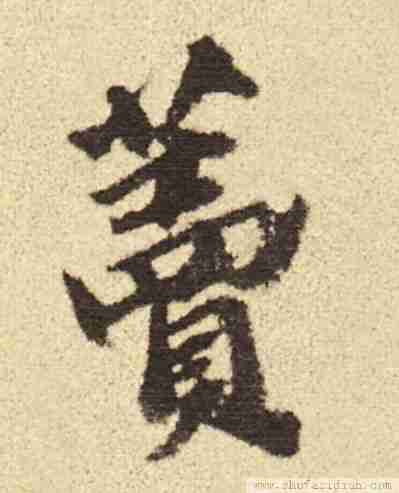 藚
www.shufazidian.com